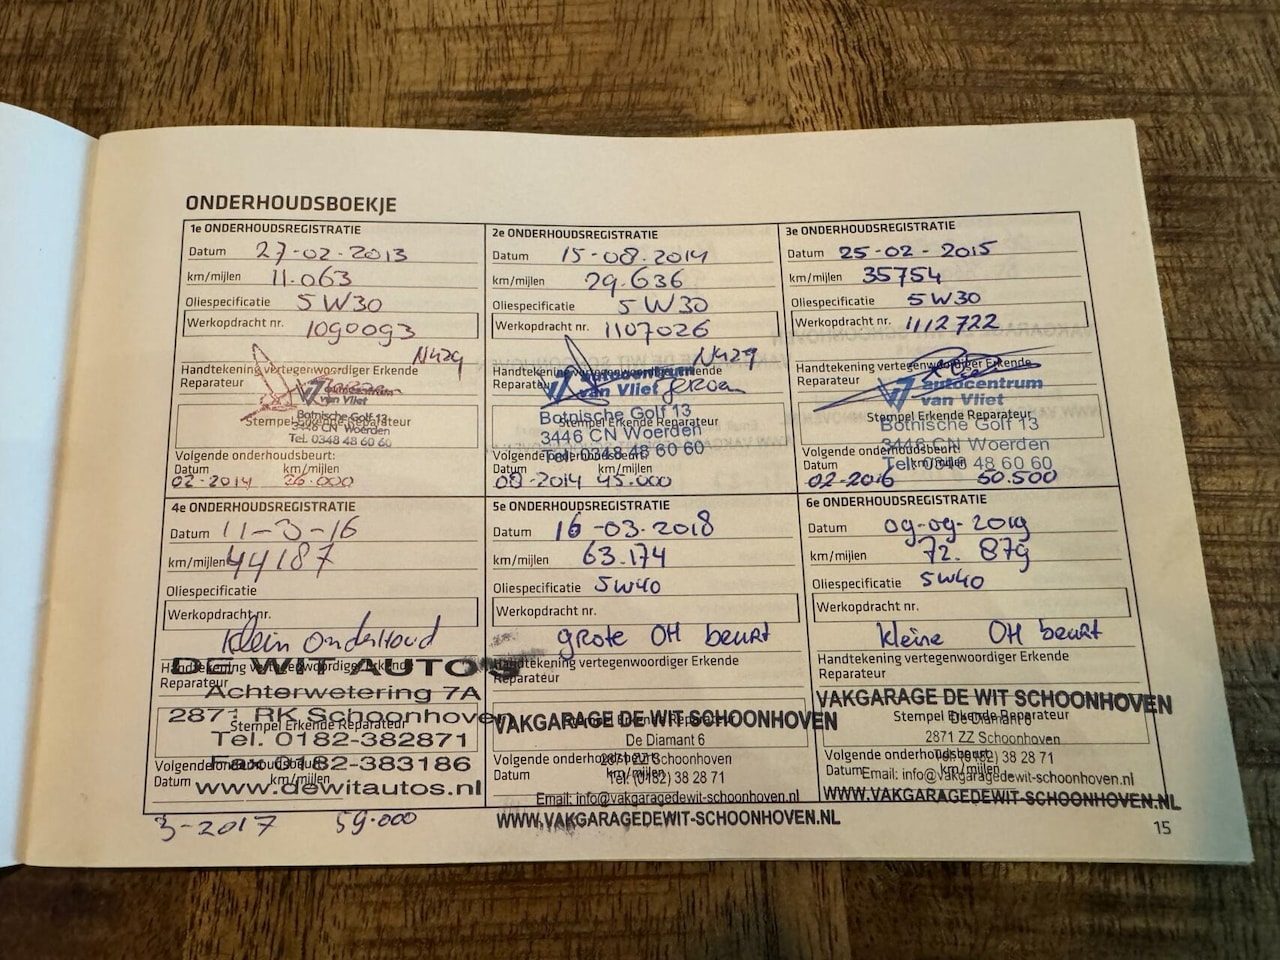 ONDERHOUDSBOEKJE
1e ONDERHOUDSREGISTRATIE
Datum 27-02-2013
km/mijlen 11.063
Oliespecificatie 5W30
Werkopdracht nr. 1090093
N429
Handtekening vertegenwoordiger Erkende
Reparateur
van Vliet
Botnische Golf 13
Stempel Erkende Reparateur
3446 CN Woerden
Tel. 0348 48 60 60
Volgende onderhoudsbeurt:
Datum km/mijlen
02-2014 26.000
2e ONDERHOUDSREGISTRATIE
Datum 15-08-2014
km/mijlen 29.636
Oliespecificatie 5W30
Werkopdracht nr. 1107026
N429
Handtekening vertegenwoordiger Erkende
Reparateur
autocentrum
van Vliet
Botnische Golf 13
Stempel Erkende Reparateur
3446 CN Woerden
Tel. 0348 48 60 60
Volgende onderhoudsbeurt:
Datum km/mijlen
08-2014 45.000
3e ONDERHOUDSREGISTRATIE
Datum 25-02-2015
km/mijlen 35754
Oliespecificatie 5W30
Werkopdracht nr. 1112722
Handtekening vertegenwoordiger Erkende
Reparateur
autocentrum
van Vliet
Stempel Erkende Reparateur
Botnische Golf 13
3446 CN Woerden
Tel. 0348 48 60 60
Volgende onderhoudsbeurt:
Datum km/mijlen
02-2016 50.500
4e ONDERHOUDSREGISTRATIE
Datum 11-3-16
km/mijlen 44187
Oliespecificatie
Werkopdracht nr.
klein onderhoud
Handtekening vertegenwoordiger Erkende
Reparateur
DE WIT AUTO'S
Achterwetering 7A
2871 RK Schoonhoven
Stempel Erkende Reparateur
Tel. 0182-382871
Fax 0182-383186
Volgende onderhoudsbeurt:
Datum km/mijlen
www.dewitautos.nl
3-2017 59.000
5e ONDERHOUDSREGISTRATIE
Datum 16-03-2018
km/mijlen 63.174
Oliespecificatie 5W40
Werkopdracht nr.
grote OH beurt
Handtekening vertegenwoordiger Erkende
Reparateur
VAKGARAGE DE WIT SCHOONHOVEN
Stempel Erkende Reparateur
De Diamant 6
2871 ZZ Schoonhoven
Volgende onderhoudsbeurt:
Datum km/mijlen
Tel. (0182) 38 28 71
Email: info@vakgaragedewit-schoonhoven.nl
WWW.VAKGARAGEDEWIT-SCHOONHOVEN.NL
6e ONDERHOUDSREGISTRATIE
Datum 09-09-2019
km/mijlen 72.879
Oliespecificatie 5W40
Werkopdracht nr.
kleine OH beurt
Handtekening vertegenwoordiger Erkende
Reparateur
VAKGARAGE DE WIT SCHOONHOVEN
Stempel Erkende Reparateur
De Diamant 6
2871 ZZ Schoonhoven
Volgende onderhoudsbeurt:
Tel. (0182) 38 28 71
Datum km/mijlen
Email: info@vakgaragedewit-schoonhoven.nl
WWW.VAKGARAGEDEWIT-SCHOONHOVEN.NL
15